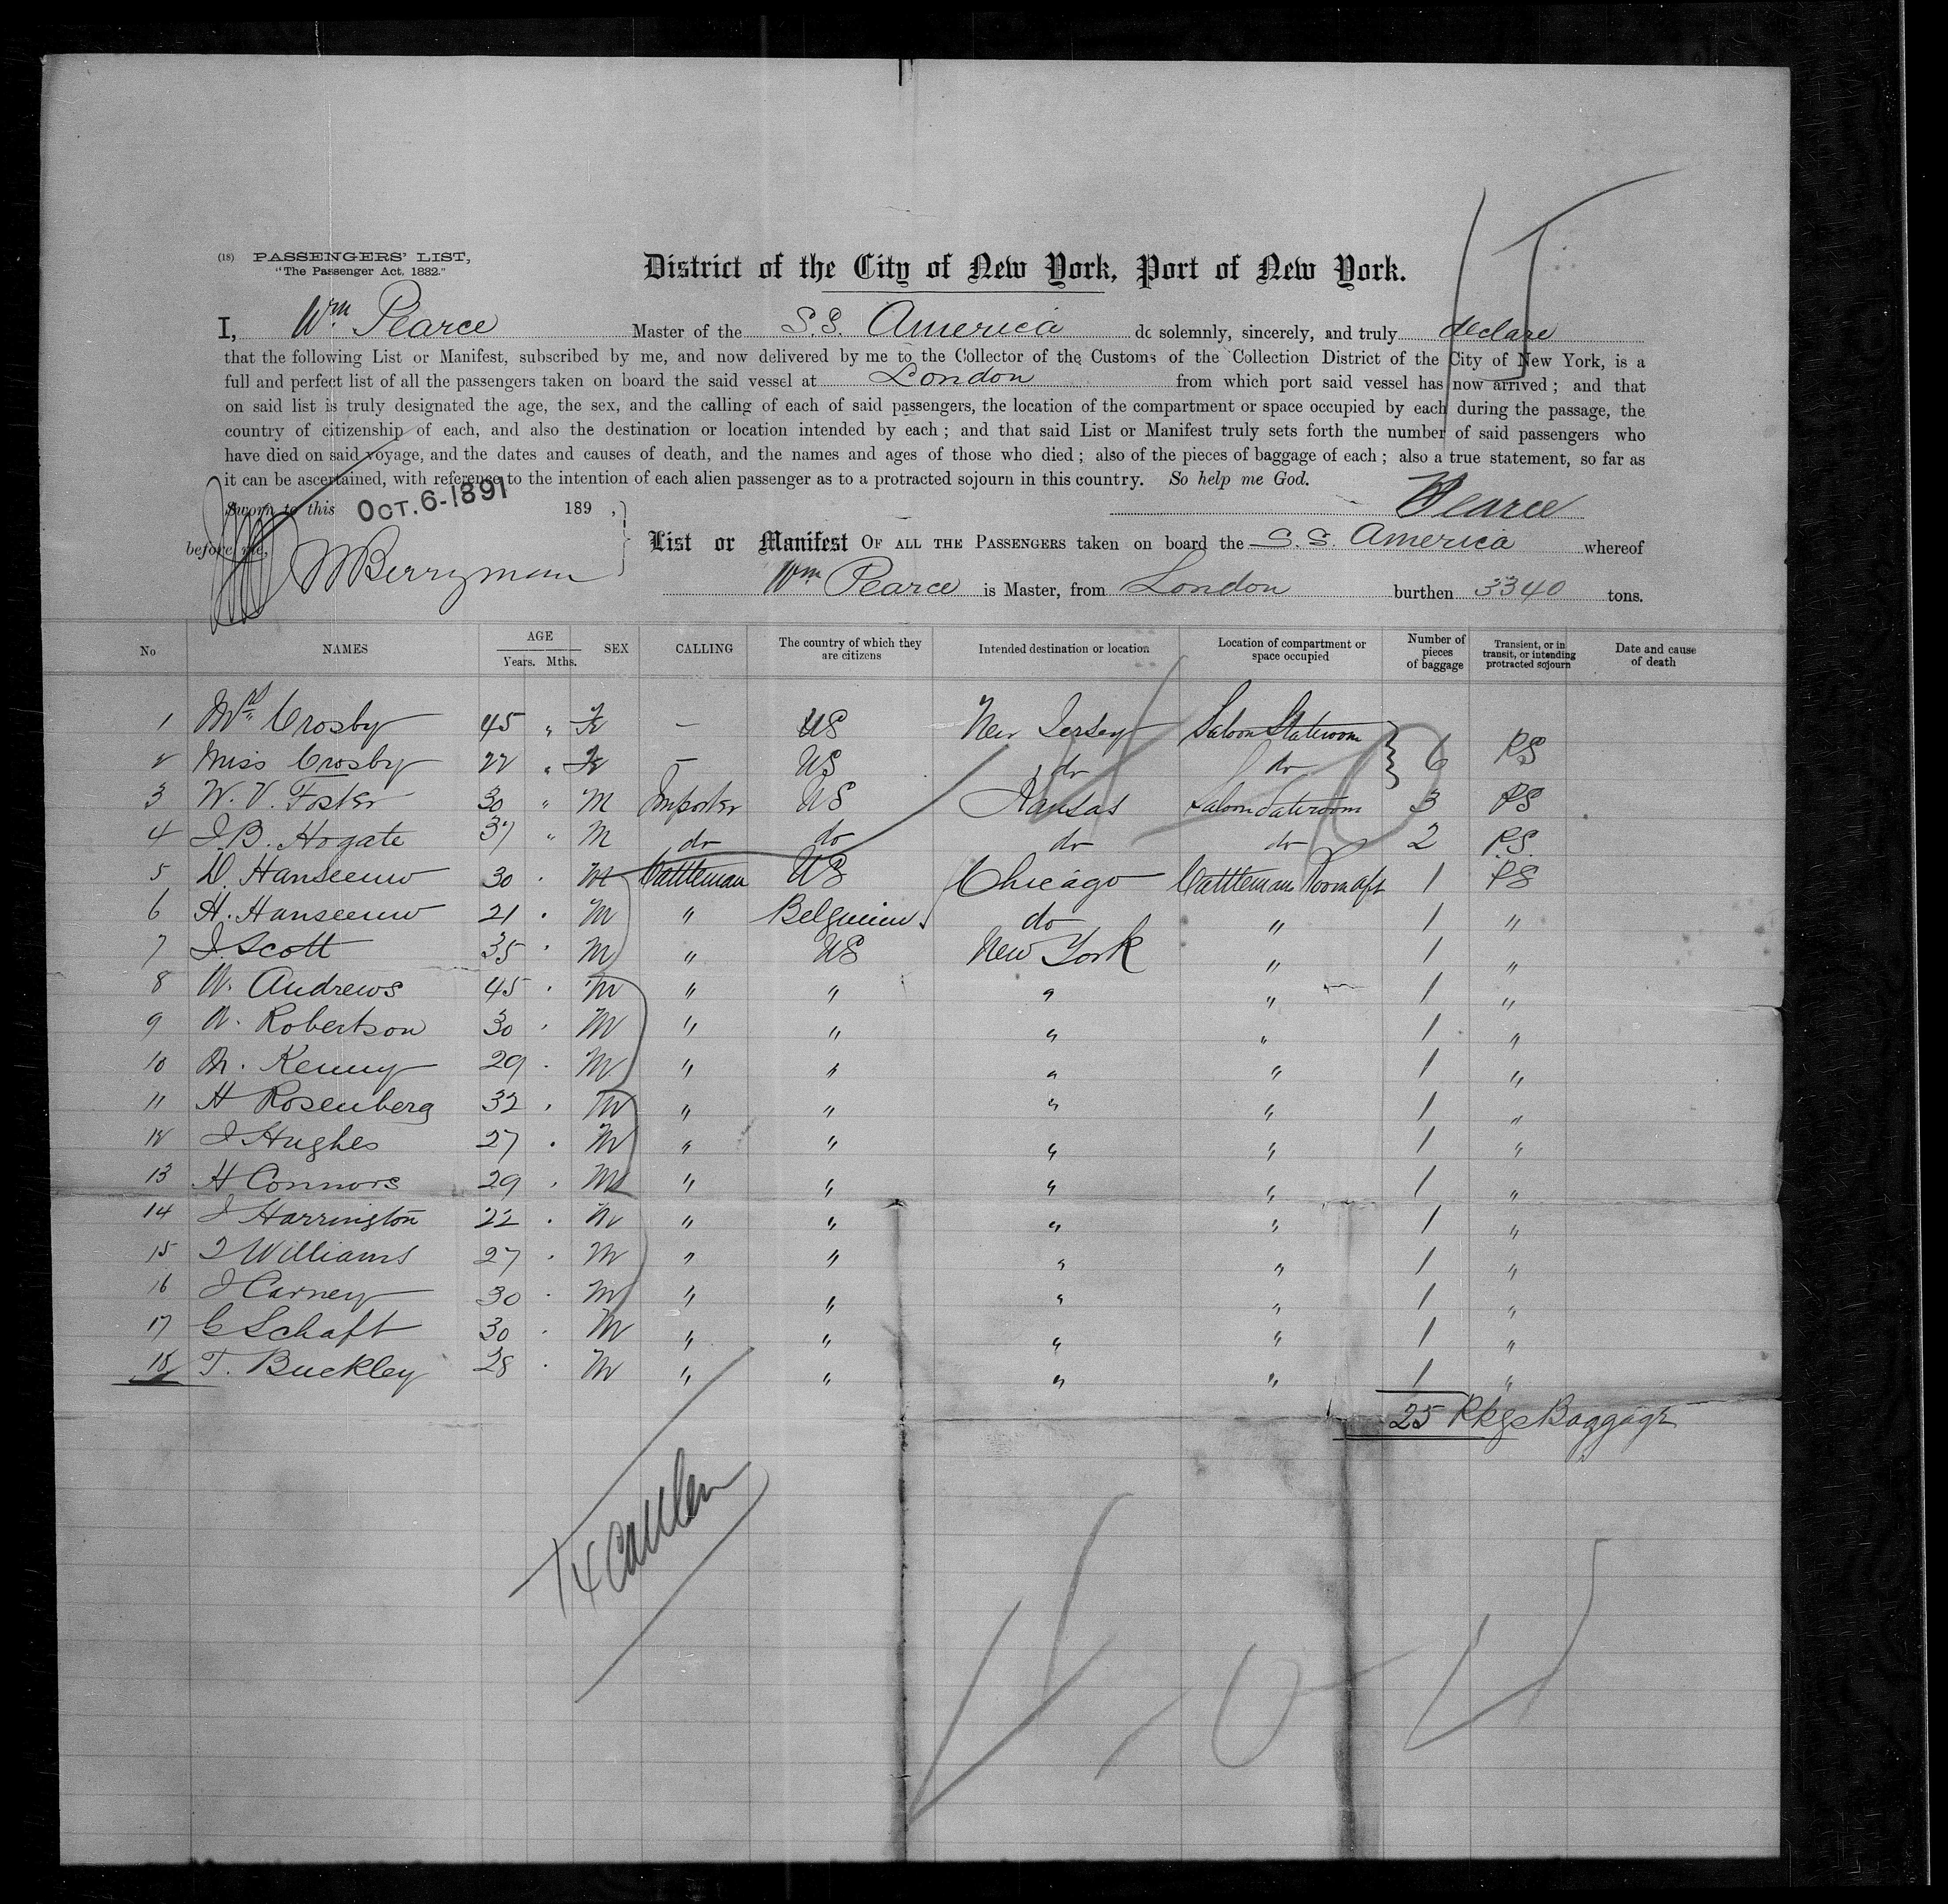 (18) PASSENGERS' LIST,
"The Passenger Act, 1882."
District of the City of New York, Port of New York.
I, Wm Pearce Master of the S.S. America do solemnly, sincerely, and truly declare
that the following List or Manifest, subscribed by me, and now delivered by me to the Collector of the Customs of the Collection District of the City of New York, is a
full and perfect list of all the passengers taken on board the said vessel at London from which port said vessel has now arrived; and that
on said list is truly designated the age, the sex, and the calling of each of said passengers, the location of the compartment or space occupied by each during the passage, the
country of citizenship of each, and also the destination or location intended by each; and that said List or Manifest truly sets forth the number of said passengers who
have died on said voyage, and the dates and causes of death, and the names and ages of those who died; also of the pieces of baggage of each; also a true statement, so far as
it can be ascertained, with reference to the intention of each alien passenger as to a protracted sojourn in this country. So help me God.
Sworn to this OCT. 6-1891 189 ,
Pearce
before me,
Berryman
List or Manifest OF ALL THE PASSENGERS taken on board the S.S. America whereof
Wm Pearce is Master, from London burthen 3340 tons.
No NAMES AGE Years. Mths. SEX CALLING The country of which they are citizens Intended destination or location Location of compartment or space occupied Number of pieces of baggage Transient, or in transit, or intending protracted sojourn Date and cause of death
1 Mrs Crosby 45 " Fe — US New Jersey Saloon Stateroom
2 Miss Crosby 22 " Fe — US do do 6 PS
3 W. V. Foster 30 " M Importer US Kansas Saloon Stateroom 3 PS
4 J. B. Hogate 37 " M do do do do 2 PS
5 D. Hanseeuw 30 " M Cattleman US Chicago Cattleman Room aft 1 PS
6 H. Hanseeuw 21 " M " Belguium do " 1 "
7 J. Scott 35 " M " US New York " 1 "
8 W. Andrews 45 " M " " " " 1 "
9 W. Robertson 30 " M " " " " 1 "
10 M. Kenny 29 " M " " " " 1 "
11 H Rosenberg 32 " M " " " " 1 "
12 J Hughes 27 " M " " " " 1 "
13 H Connors 29 " M " " " " 1 "
14 J Harrington 22 " M " " " " 1 "
15 J Williams 27 " M " " " " 1 "
16 J Carney 30 " M " " " " 1 "
17 G Schaft 30 " M " " " " 1 "
18 T. Buckley 28 " M " " " " 1 "
25 Pkgs Baggage
14 Cattlemen